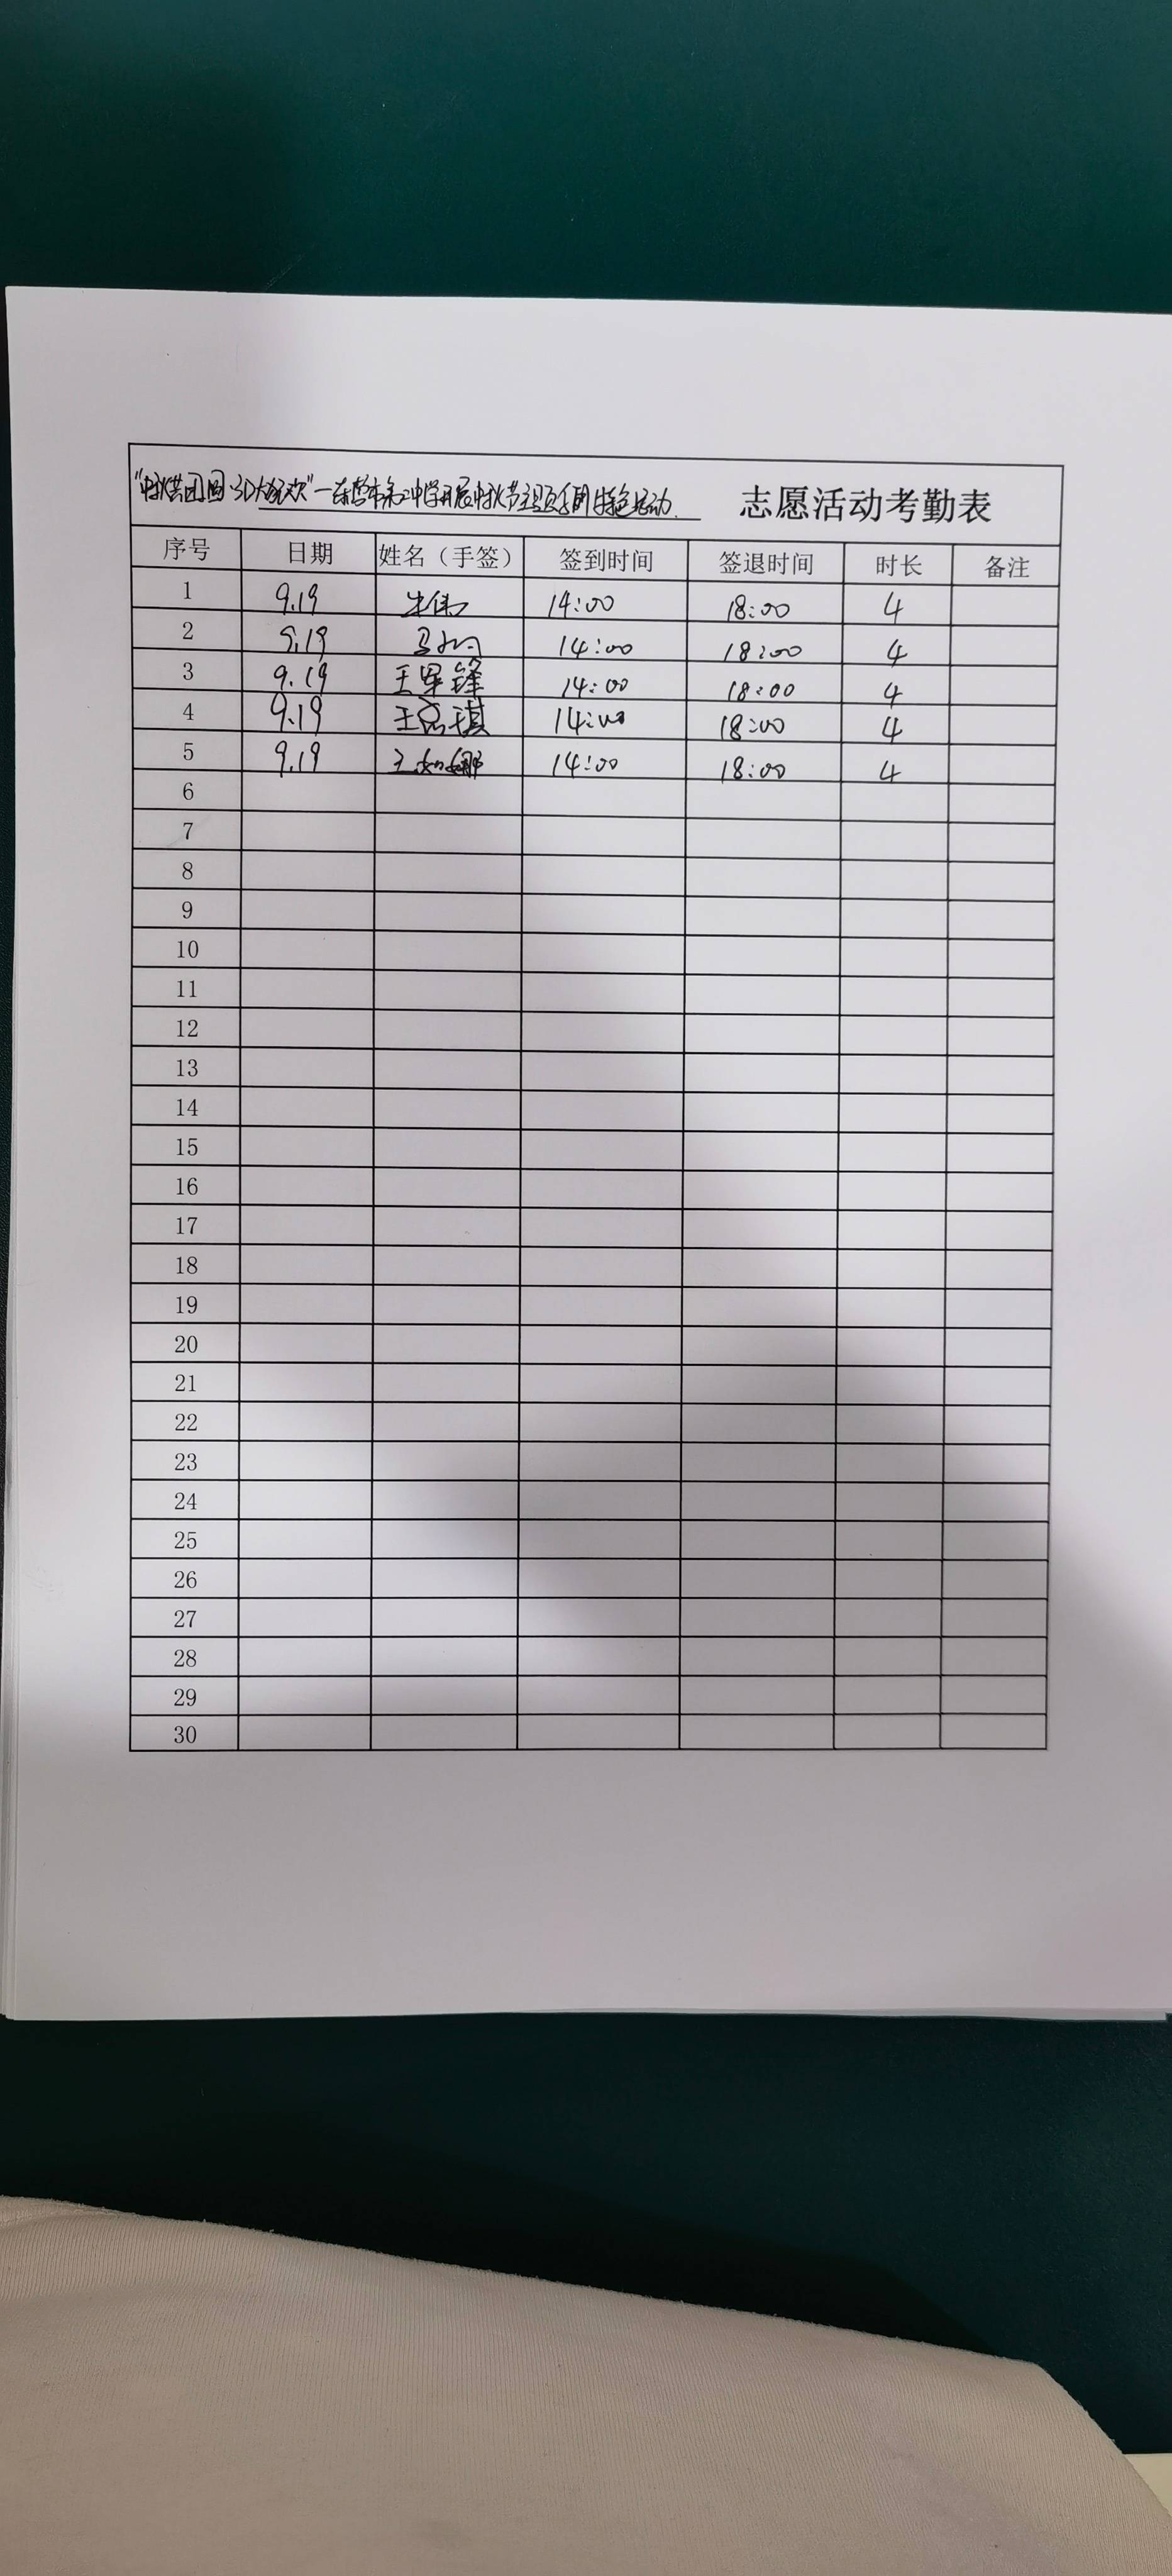 "中秋共团圆·3D大狂欢"—东营市第二中学开展中秋节主题系列特色活动. 志愿活动考勤表
序号 日期 姓名（手签） 签到时间 签退时间 时长 备注
1 9.19 14:00 18:00 4
2 9.19 14:00 18:00 4
3 9.19 王军锋 14:00 18:00 4
4 9.19 14:00 18:00 4
5 9.19 王如娜 14:00 18:00 4
6
7
8
9
10
11
12
13
14
15
16
17
18
19
20
21
22
23
24
25
26
27
28
29
30